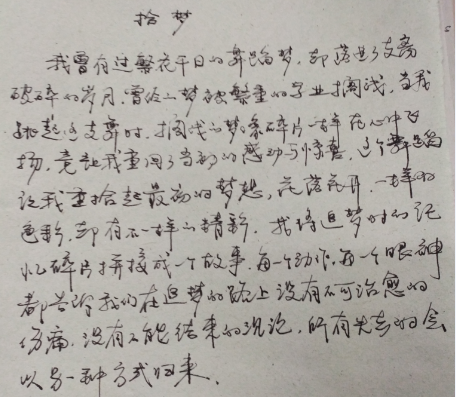 拾梦
我曾有过繁花千日的舞蹈梦，却落进了支离
破碎的岁月，曾经的梦被繁重的学业搁浅，当我
跳起这支舞时，搁浅的梦像碎片一样在心中飞
扬，竟让我重回了当初的感动与惊喜，这个舞蹈
让我重拾起最初的梦想，花落花开，一样的
色彩，却有不一样的精彩。我将追梦时的记
忆碎片拼接成一个故事，每一个动作，每一个眼神
都告诉我们在追梦的路上没有不可治愈的
伤痛，没有不能结束的沉沦，所有失去的会
以另一种方式归来。